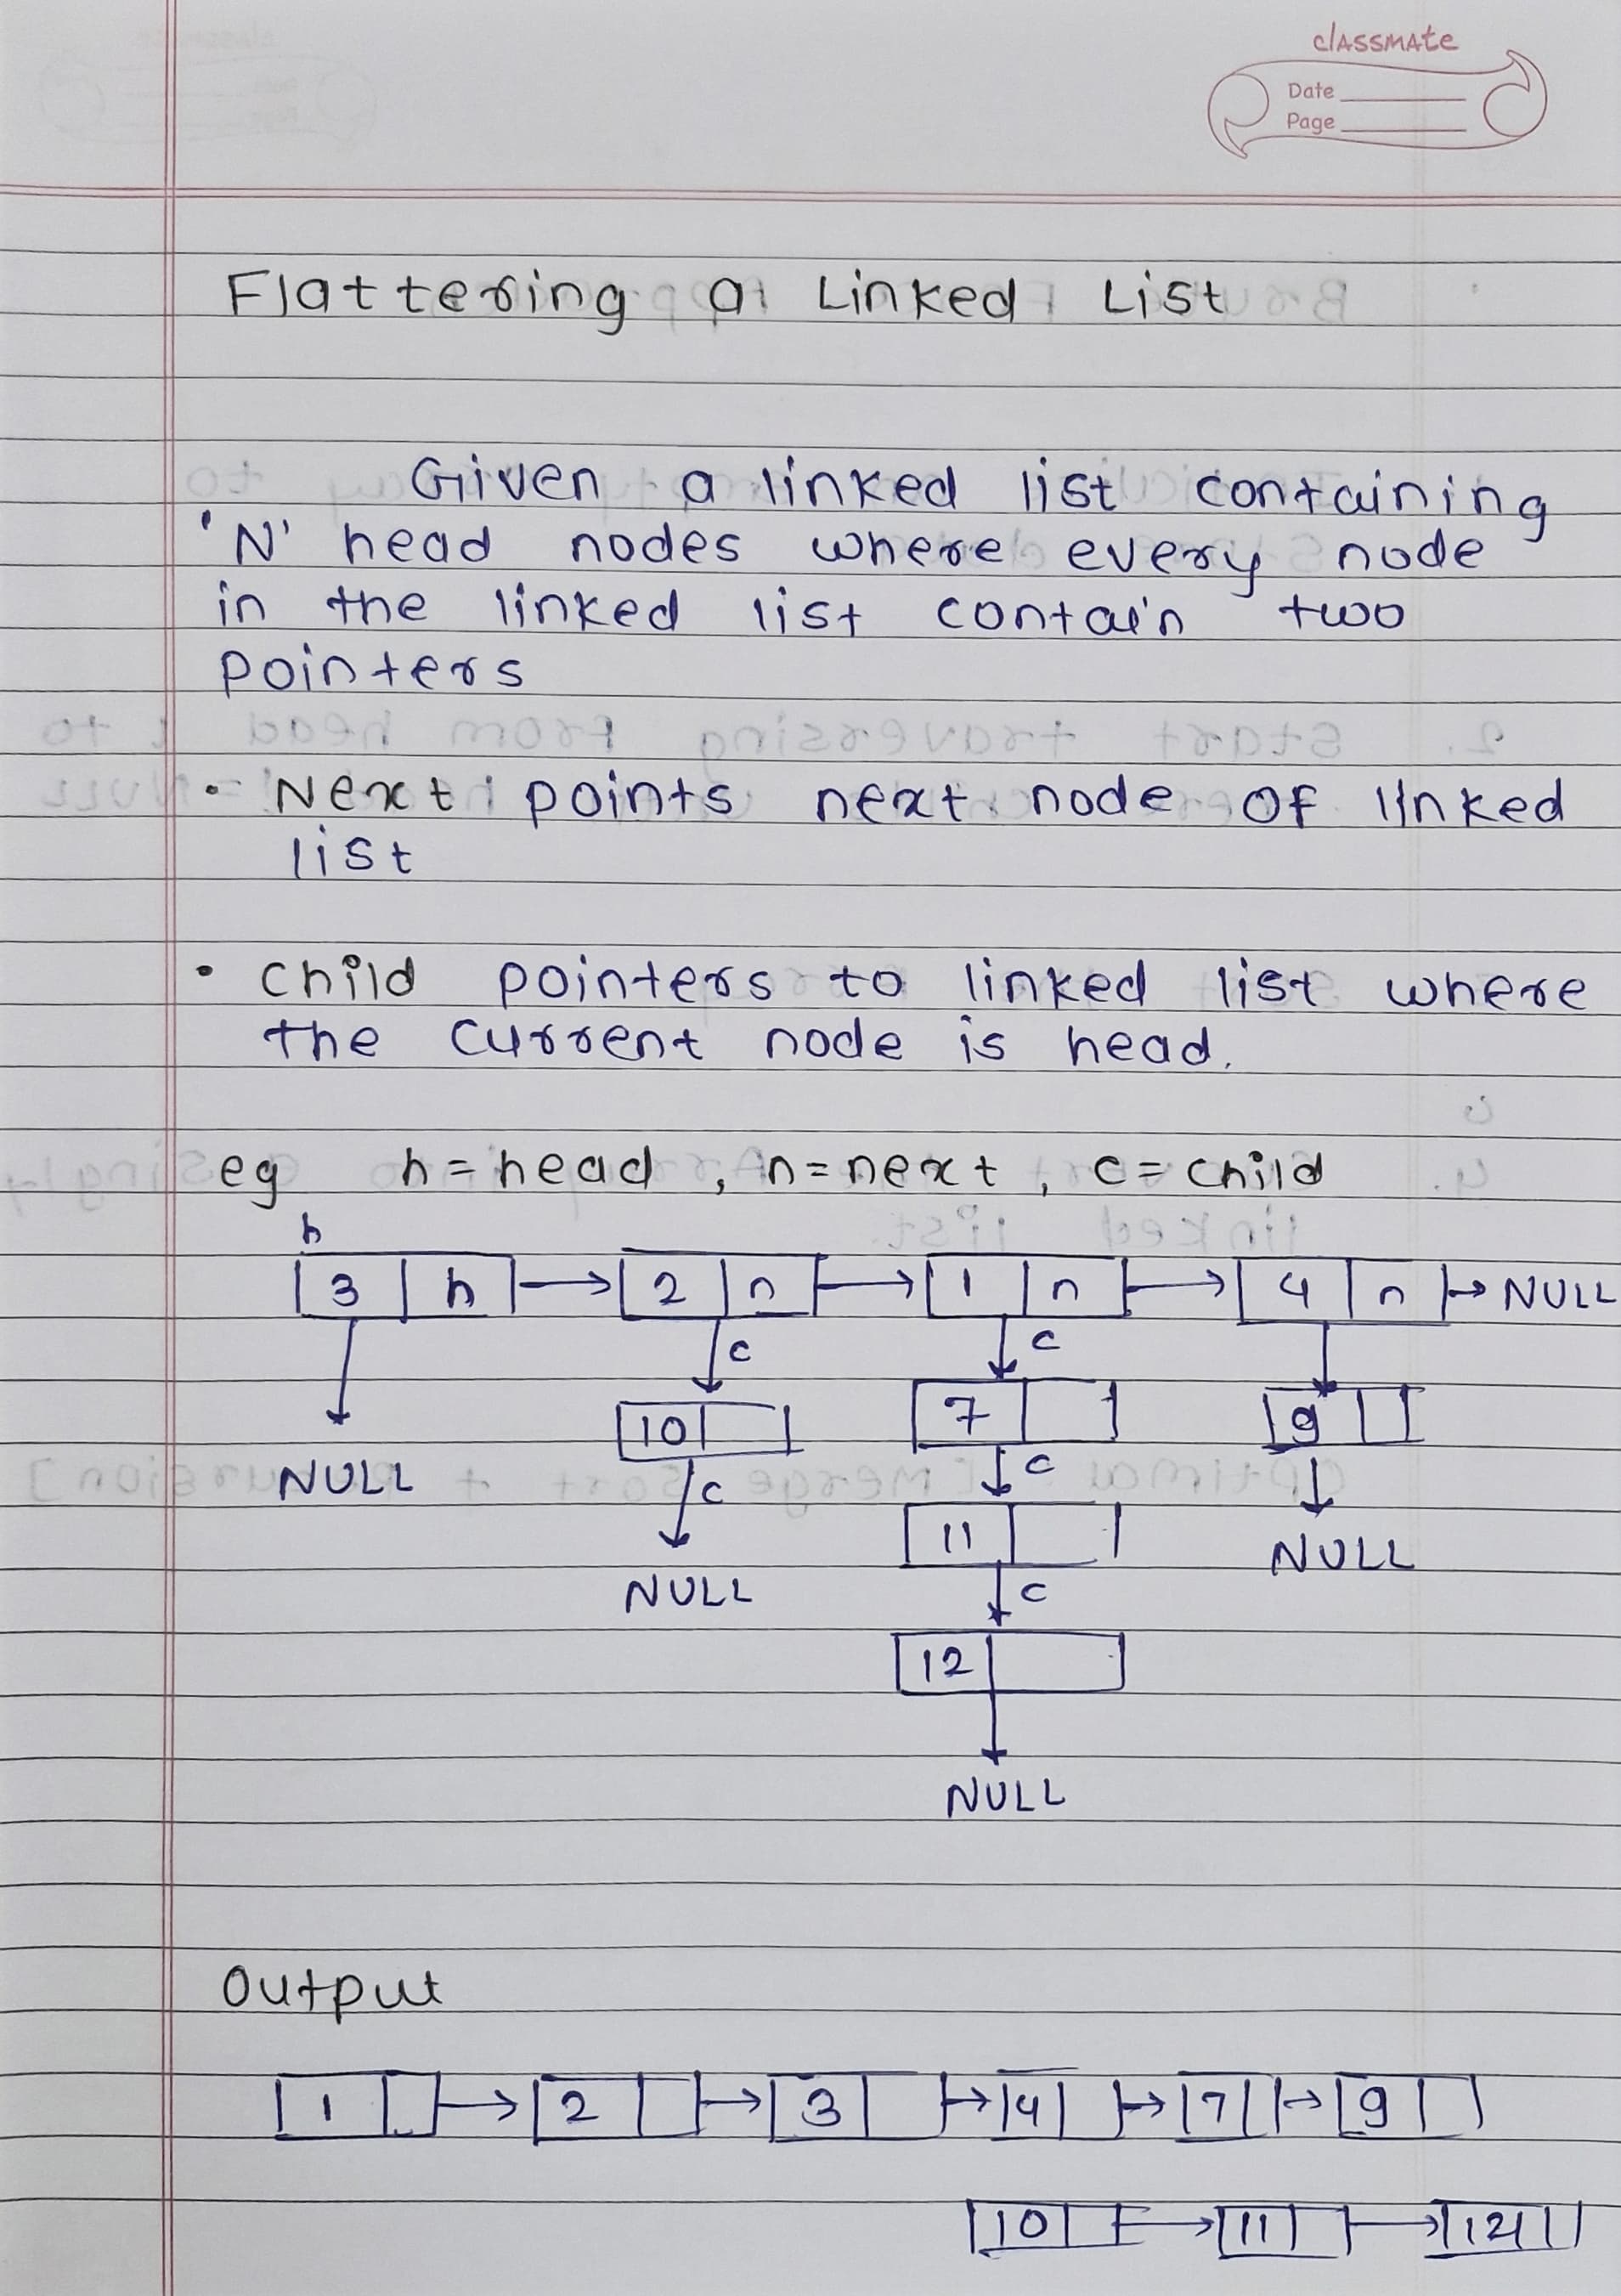 classmate
Date
Page
Flattering a Linked List
Given a linked list containing
'N' head nodes where every node
in the linked list contain two
pointers
• Next points next node of linked
list
• Child pointers to linked list where
the current node is head.
eg h = head , n = next , c = child
h
3 h → 2 n → 1 n → 4 n → NULL
c c
10 7 9
NULL c c
11 NULL
NULL c
12
NULL
Output
1 → 2 → 3 → 4 → 7 → 9
10 → 11 → 12